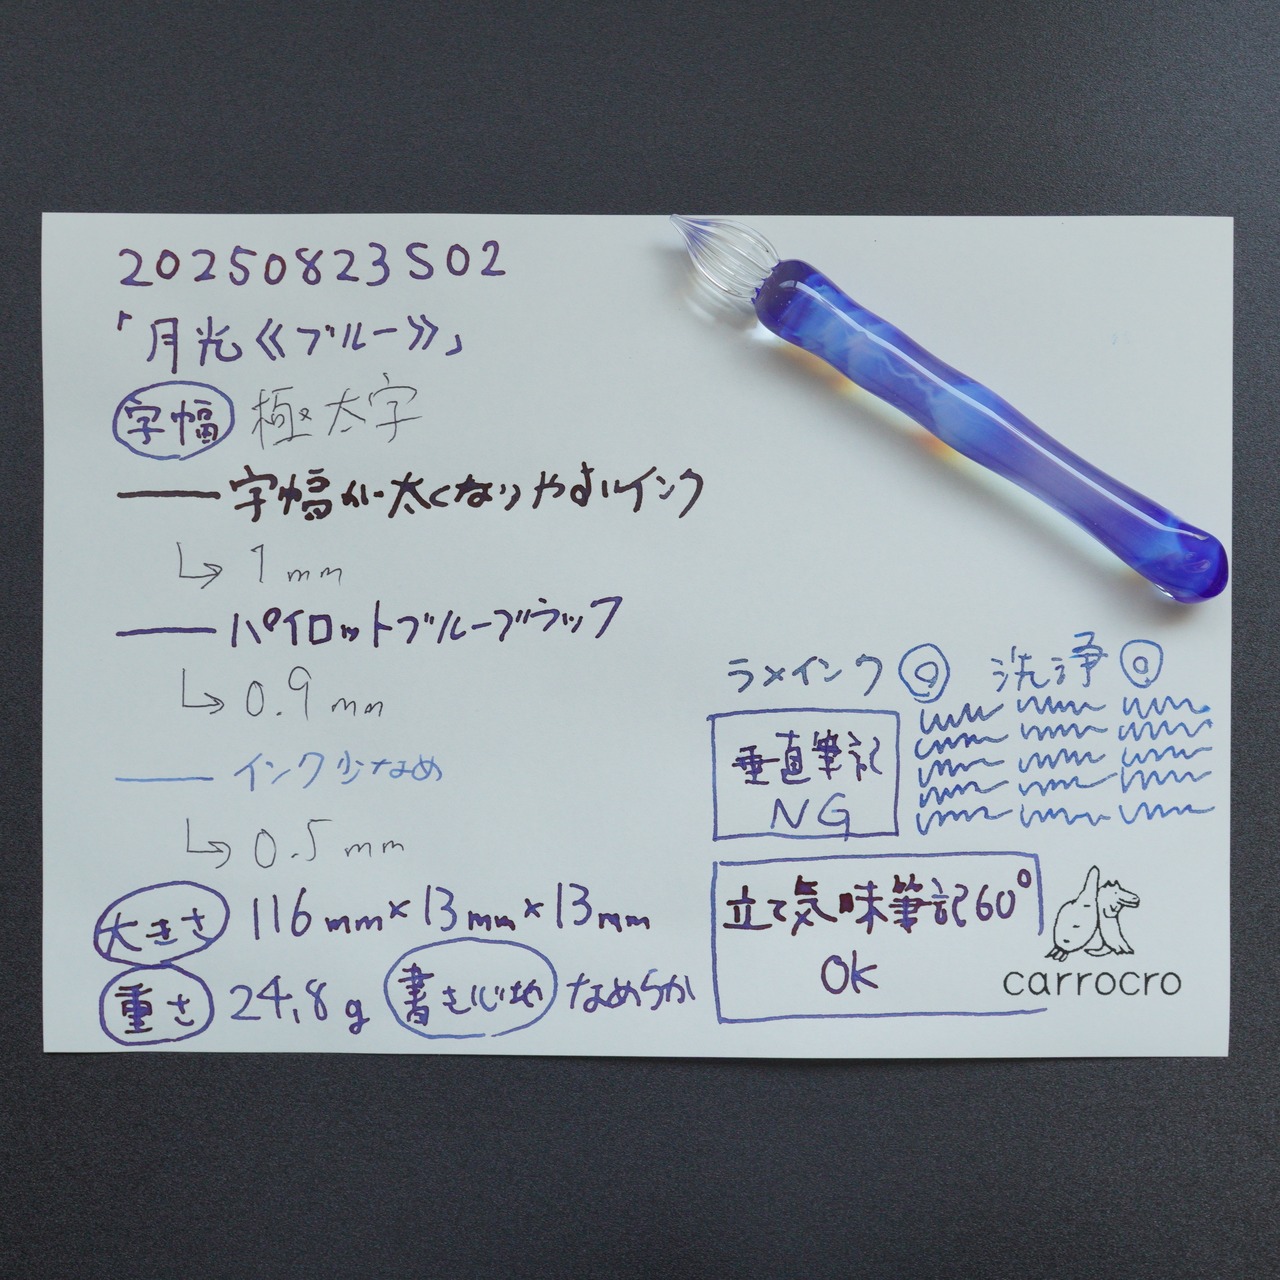 20250823S02
「月光《ブルー》」
字幅 極太字
字幅が太くなりやすいインク
↳ 1mm
パイロットブルーブラック
↳ 0.9mm
インク少なめ
↳ 0.5mm
大きさ 116mm×13mm×13mm
重さ 24.8g 書き心地 なめらか
ラメインク ◎ 洗浄 ◎
垂直筆記
NG
立て気味筆記60°
OK
carrocro